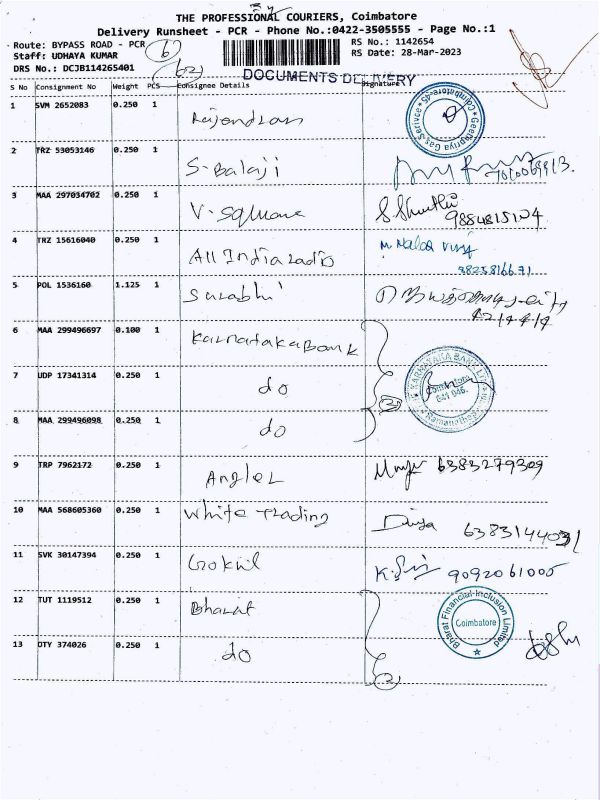 THE PROFESSIONAL COURIERS, Coimbatore
Delivery Runsheet - PCR - Phone No.:0422-3505555 - Page No.:1
Route: BYPASS ROAD - PCR
RS No.: 1142654
Staff: UDHAYA KUMAR
RS Date: 28-Mar-2023
DRS No.: DCJB114265401
DOCUMENTS DELIVERY
S No Consignment No Weight PCS Consignee Details Signature
1 SVM 2652083 0.250 1 Rajendran
Geethapriya Gas Service Coimbatore-45
2 TRZ 53053146 0.250 1 S-Balaji
3 MAA 297034702 0.250 1 V-Square S. Shruthi
4 TRZ 15616040 0.250 1 All India radio
5 POL 1536160 1.125 1 Surabhi
6 MAA 299496697 0.100 1 Karnataka Bank
7 UDP 17341314 0.250 1 do
KARNATAKA BANK Coimbatore 641 045
8 MAA 299496098 0.250 1 do
9 TRP 7962172 0.250 1 Angler 6383279309
10 MAA 568605360 0.250 1 White Trading Divya 6383144031
11 SVK 30147394 0.250 1 Gokul 9092061005
12 TUT 1119512 0.250 1 Bharat
Bharat Financial Inclusion Limited Coimbatore
13 OTY 374026 0.250 1 do